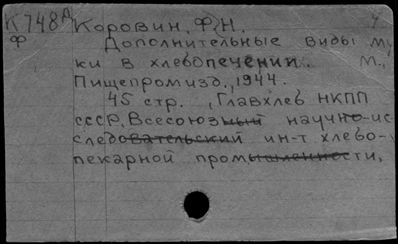 К748А Коровин, Ф.Н. 4
Ф Дополнительные виды му
ки в хлебопечении. М.,
Пищепромизд., 1944.
45 стр. , Главхлеб НКПП
СССР, Всесоюзный научно-ис
следовательский ин-т хлебо-
пекарной промышленности,